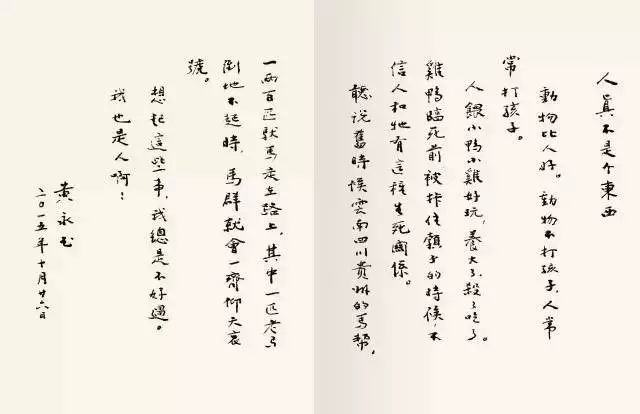 人真不是个東西
動物比人好。動物不打孩子，人常
常打孩子。
人餵小鴨小雞好玩，養大了殺了吃了。
雞鴨臨死前被拃住頸子的時候，不
信人和牠有這種生死關係。
聽說舊時候雲南四川貴州的馬幫，
一兩百匹馱馬走在路上，其中一匹老了
倒地不起時，馬群就會一齊仰天哀
號。
想起這些事，我總是不好過。
我也是人啊！
黃永玉
二〇一五年十月廿六日